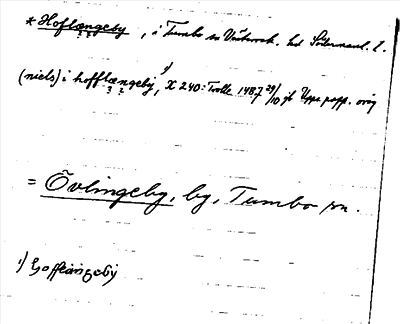 * Hoflængeby, i Tumbo sn Västerrek. hd Södermanl. l.
(niels) i hofflængeby, 1) X 240: Trolle 1487 29/10 jb Upps papp. orig
= Övlingeby, by, Tumbo sn.
1) hofflængeby